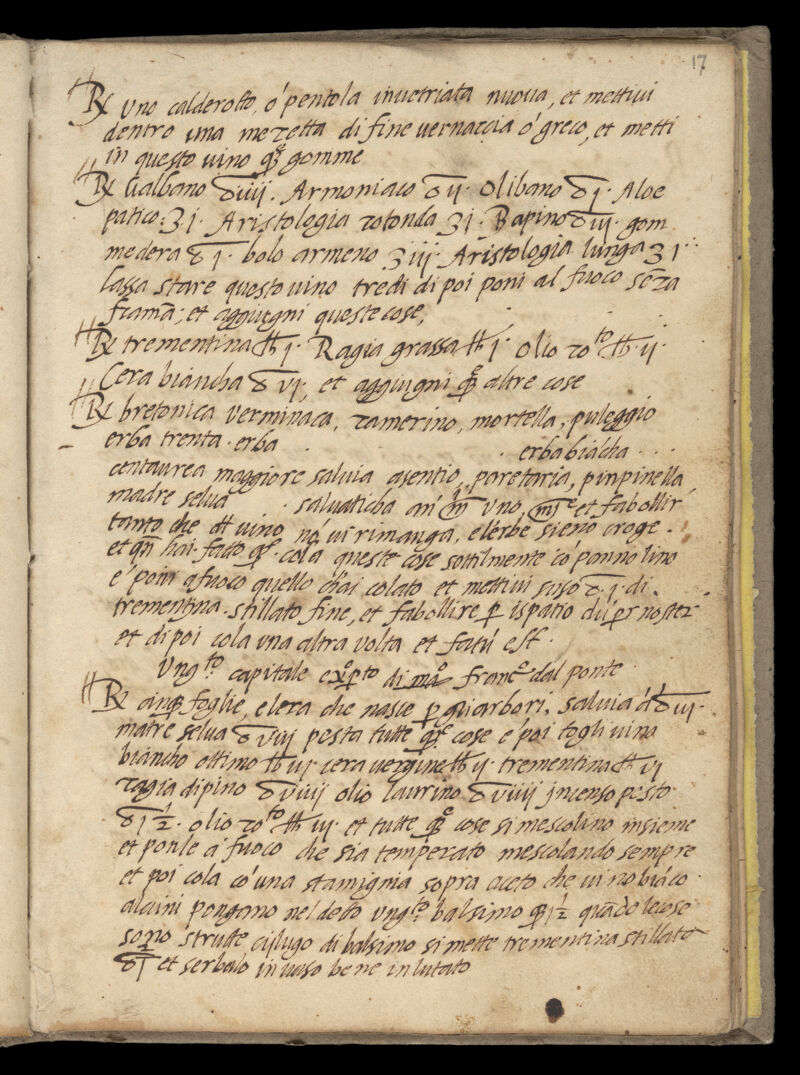 17
℞ Uno calderotto, ó pentola invetriata nuova, et mettivi
dentro una mezetta di fine vernaccia ó greco, et metti
in questo vino q̄ste gomme
℞ Galbano ʒ̄iiij. Armoniaco ʒ̄ij. Olibano ʒ̄j. Aloe
patico: ʒj. Aristologia rotonda ʒj. Bapino ʒ̄iij. gom
medera ʒ̄j. bolo armeno ʒiij. Aristologia lunga ʒj
Lassa stare questo vino tre di di poi poni al fuoco sēza
fiamā; et aggiugni queste cose,
℞ trementina ℔j. Ragia grassa ℔j. Olio roto ℔ij.
Cera biancha ʒ̄vj; et aggiugni q̄ste altre cose
℞ bretonica verminaca, ramerino, mortella, puleggio
erba trenta. erba erba biācha
centaurea maggiore salvia asentio, paretaria, pinpinella,
madre selva salvaticha an̄ m̄ uno, et fa bollir
tanto che dt̄ vino nó vi rimanga, e lerbe sieno croge.
et qn̄ hai fatto q̄sto cola queste cose sottilmente có panno lino
e poni a fuoco quello ch̄ai colato et mettivi suso ʒ̄j. di
trementina. stillato fine, et fa bollire p̄ ispatio dú p̄r noster
et di poi cola una altra volta et fatú est.
Ungto capitale exp̄to di mo Franco dal ponte
℞ cinq̄ foglie, elera che nasce p̄ gli arbori, salvia á ʒ̄iij.
matre selva ʒ̄viij pesta tutte q̄ste cose e poi togli vino
biancho ottimo ℔iij cera vergine ℔ij trementina ℔vj
ragia di pino ʒ̄viiij olio laurino ʒ̄viiij incenso pesto
ʒ̄j ½. olio roto ℔iij et tutte q̄ste cose si mescolino insieme
et ponle a fuoco che sia temperato mescolando sempre
et poi cola có una stamignia sopra aceto che vino biāco
alcuni pongano nel detto Ungto balsimo q̄j ½ quādo le cose
sono strutte ī luogo di balsimo si mette trementina stillato
ʒ̄j et serbalo in vaso bene inlutato